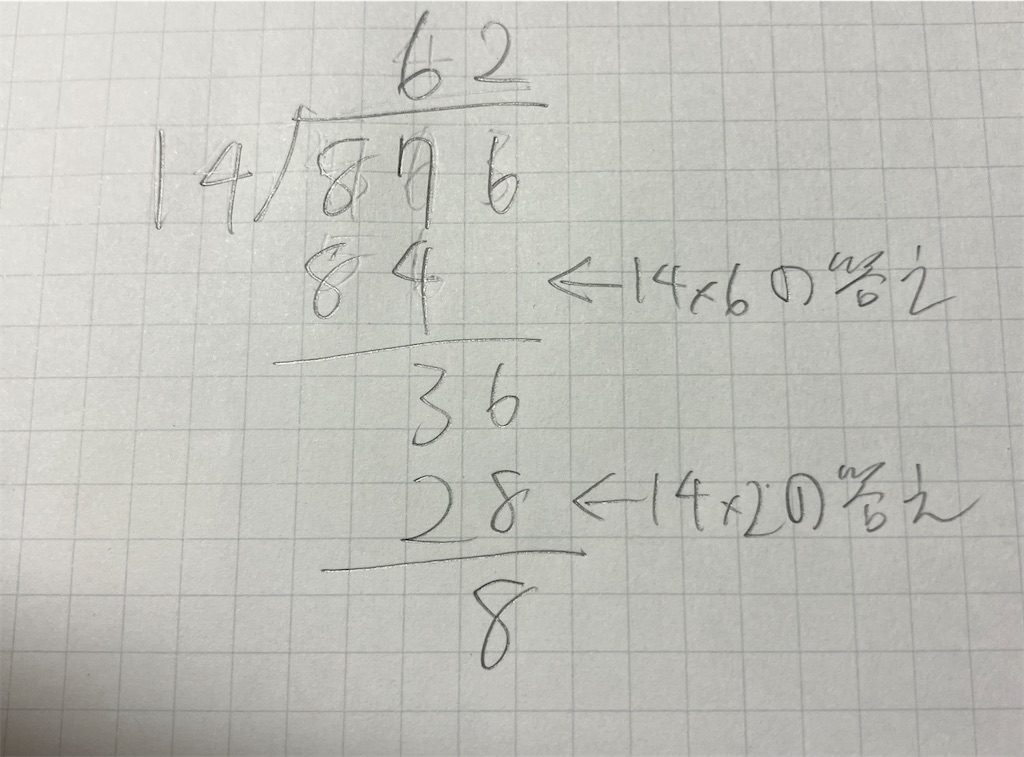 62
14)876
84 ←14×6の答え
36
28 ←14×2の答え
8